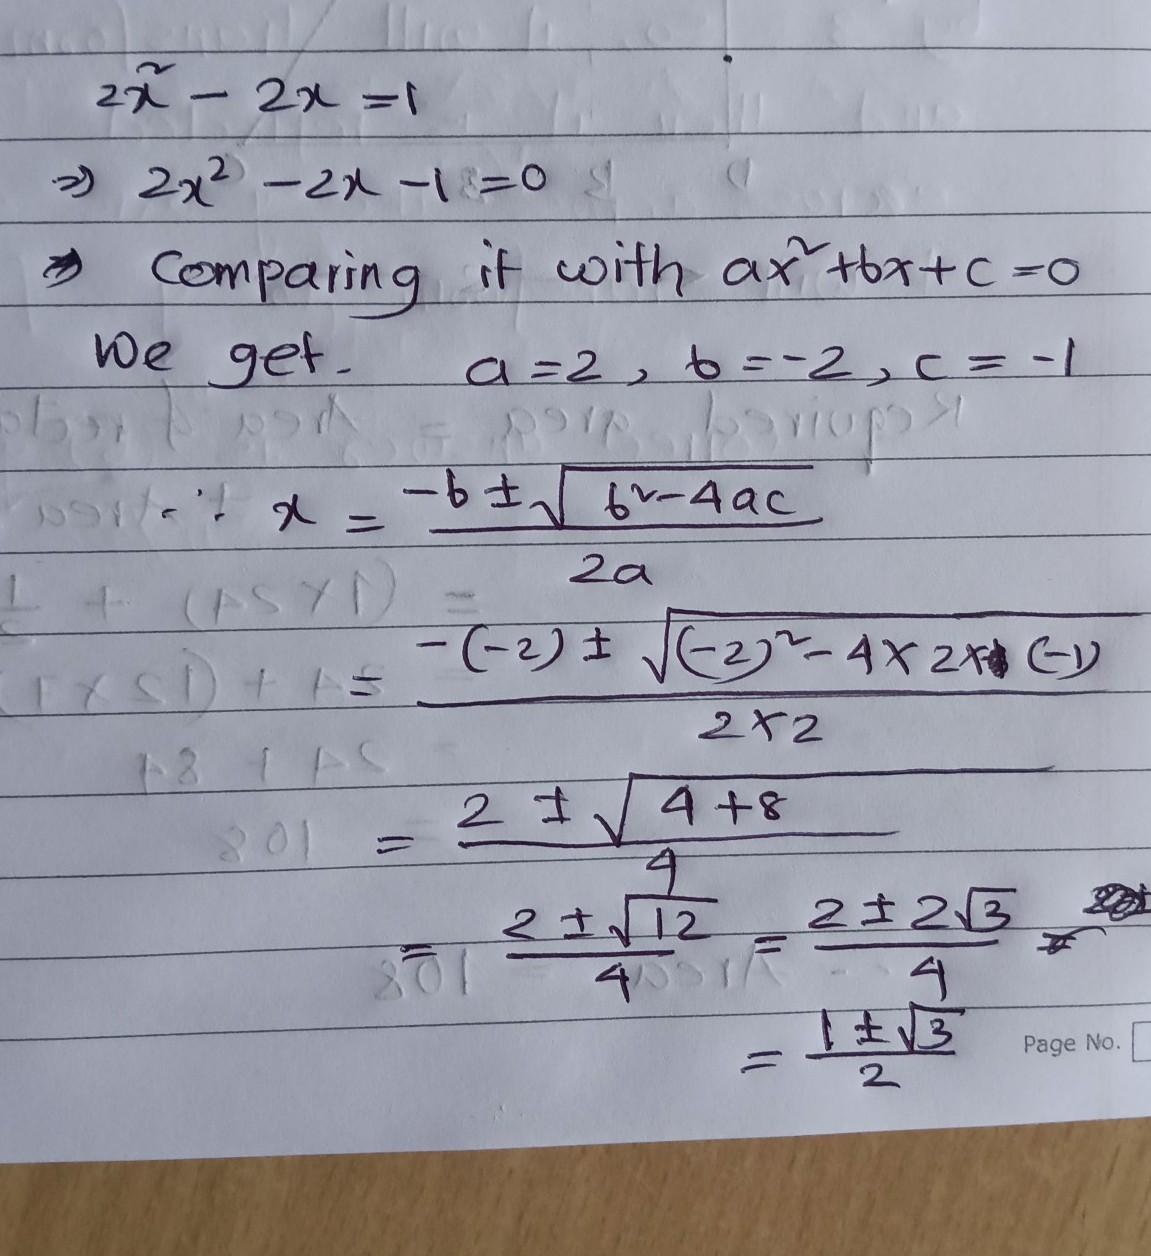 2x² - 2x = 1
⇒ 2x² - 2x - 1 = 0
⇒ Comparing it with ax² + bx + c = 0
We get. a = 2, b = -2, c = -1
∴ x = (-b ± √(b² - 4ac)) / 2a
= (-(-2) ± √((-2)² - 4 × 2 × (-1))) / (2 × 2)
= (2 ± √(4 + 8)) / 4
= (2 ± √12) / 4 = (2 ± 2√3) / 4
= (1 ± √3) / 2
Page No.